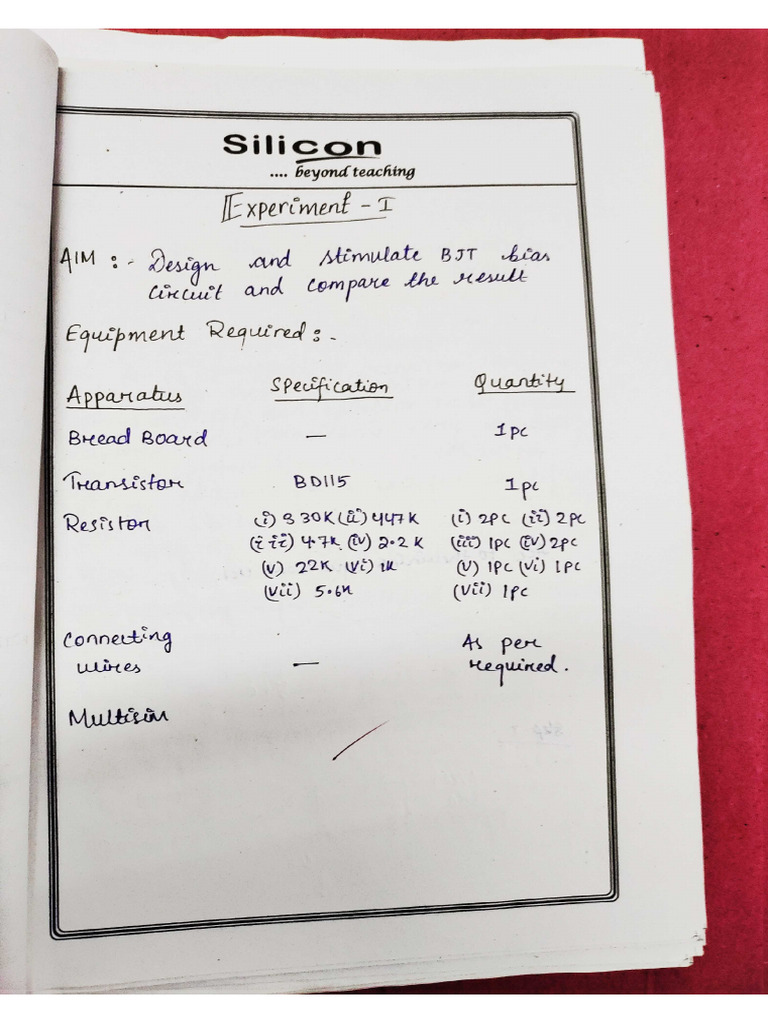 Silicon
.... beyond teaching
Experiment - I
AIM :- Design and stimulate BJT bias
circuit and compare the result
Equipment Required :-
Apparatus Specification Quantity
Bread Board — 1pc
Transistor BD115 1pc
Resistor (i) 330K (ii) 447K (i) 2pc (ii) 2pc
(iii) 4.7K (iv) 2.2K (iii) 1pc (iv) 2pc
(v) 22K (vi) 1K (v) 1pc (vi) 1pc
(vii) 5.6K (vii) 1pc
Connecting As per
wires — required.
Multisim